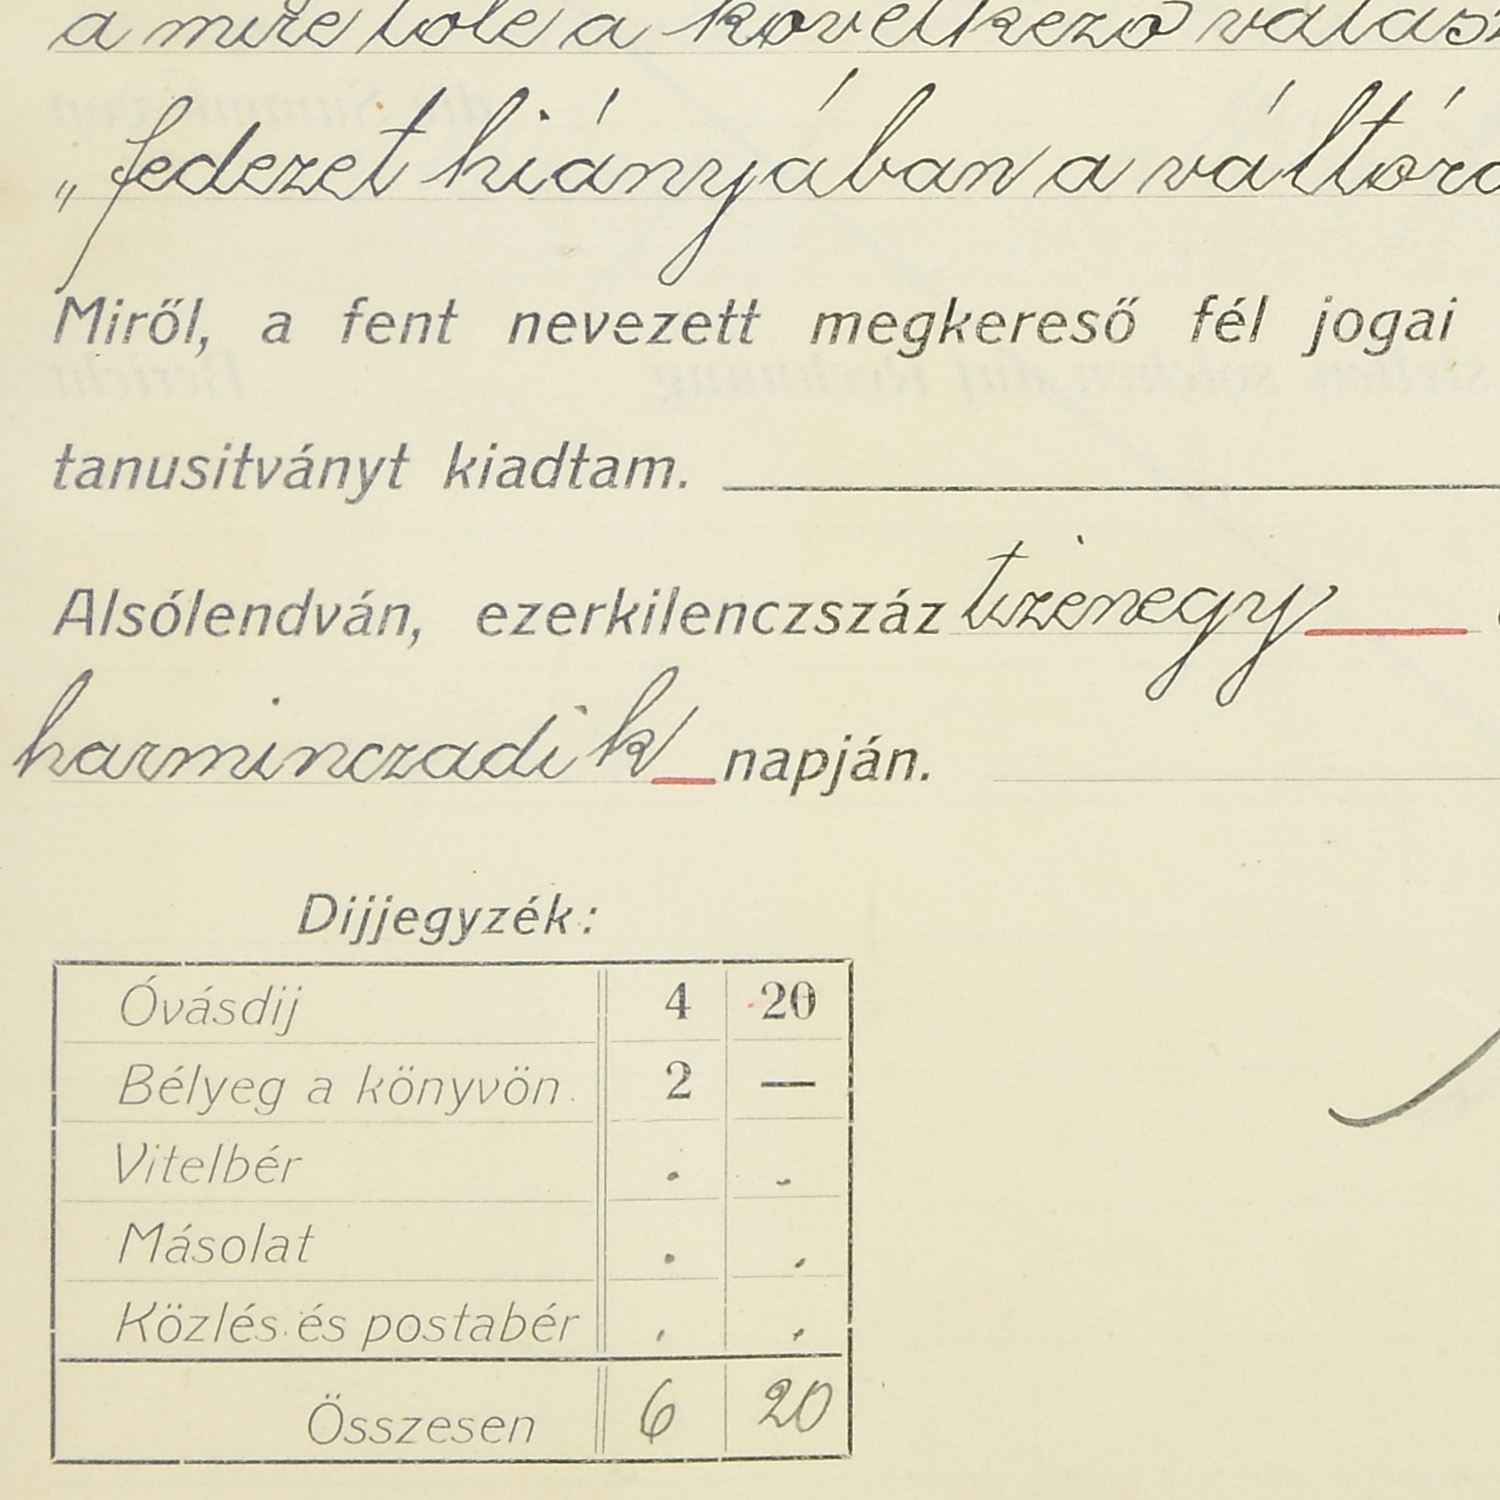 a mire tőle a következő válasz
„fedezet hiányában a váltót
Miről, a fent nevezett megkereső fél jogai
tanusitványt kiadtam.
Alsólendván, ezerkilenczszáz tizenegy
harminczadik napján.
Dijjegyzék:
Óvásdij 4 20
Bélyeg a könyvön. 2 —
Vitelbér . .
Másolat . .
Közlés és postabér . .
Összesen 6 20